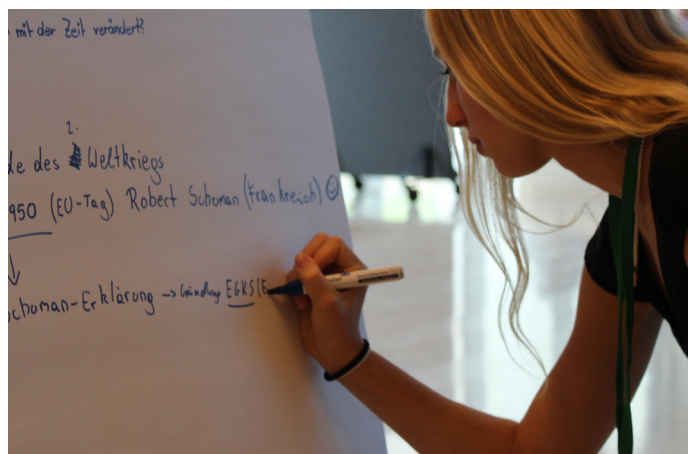 mit der Zeit verändert?
2.
de des Weltkriegs
950 (EU-Tag) Robert Schuman (Frankreich) ☺
↓
schuman-Erklärung → Gründung EGKS (E